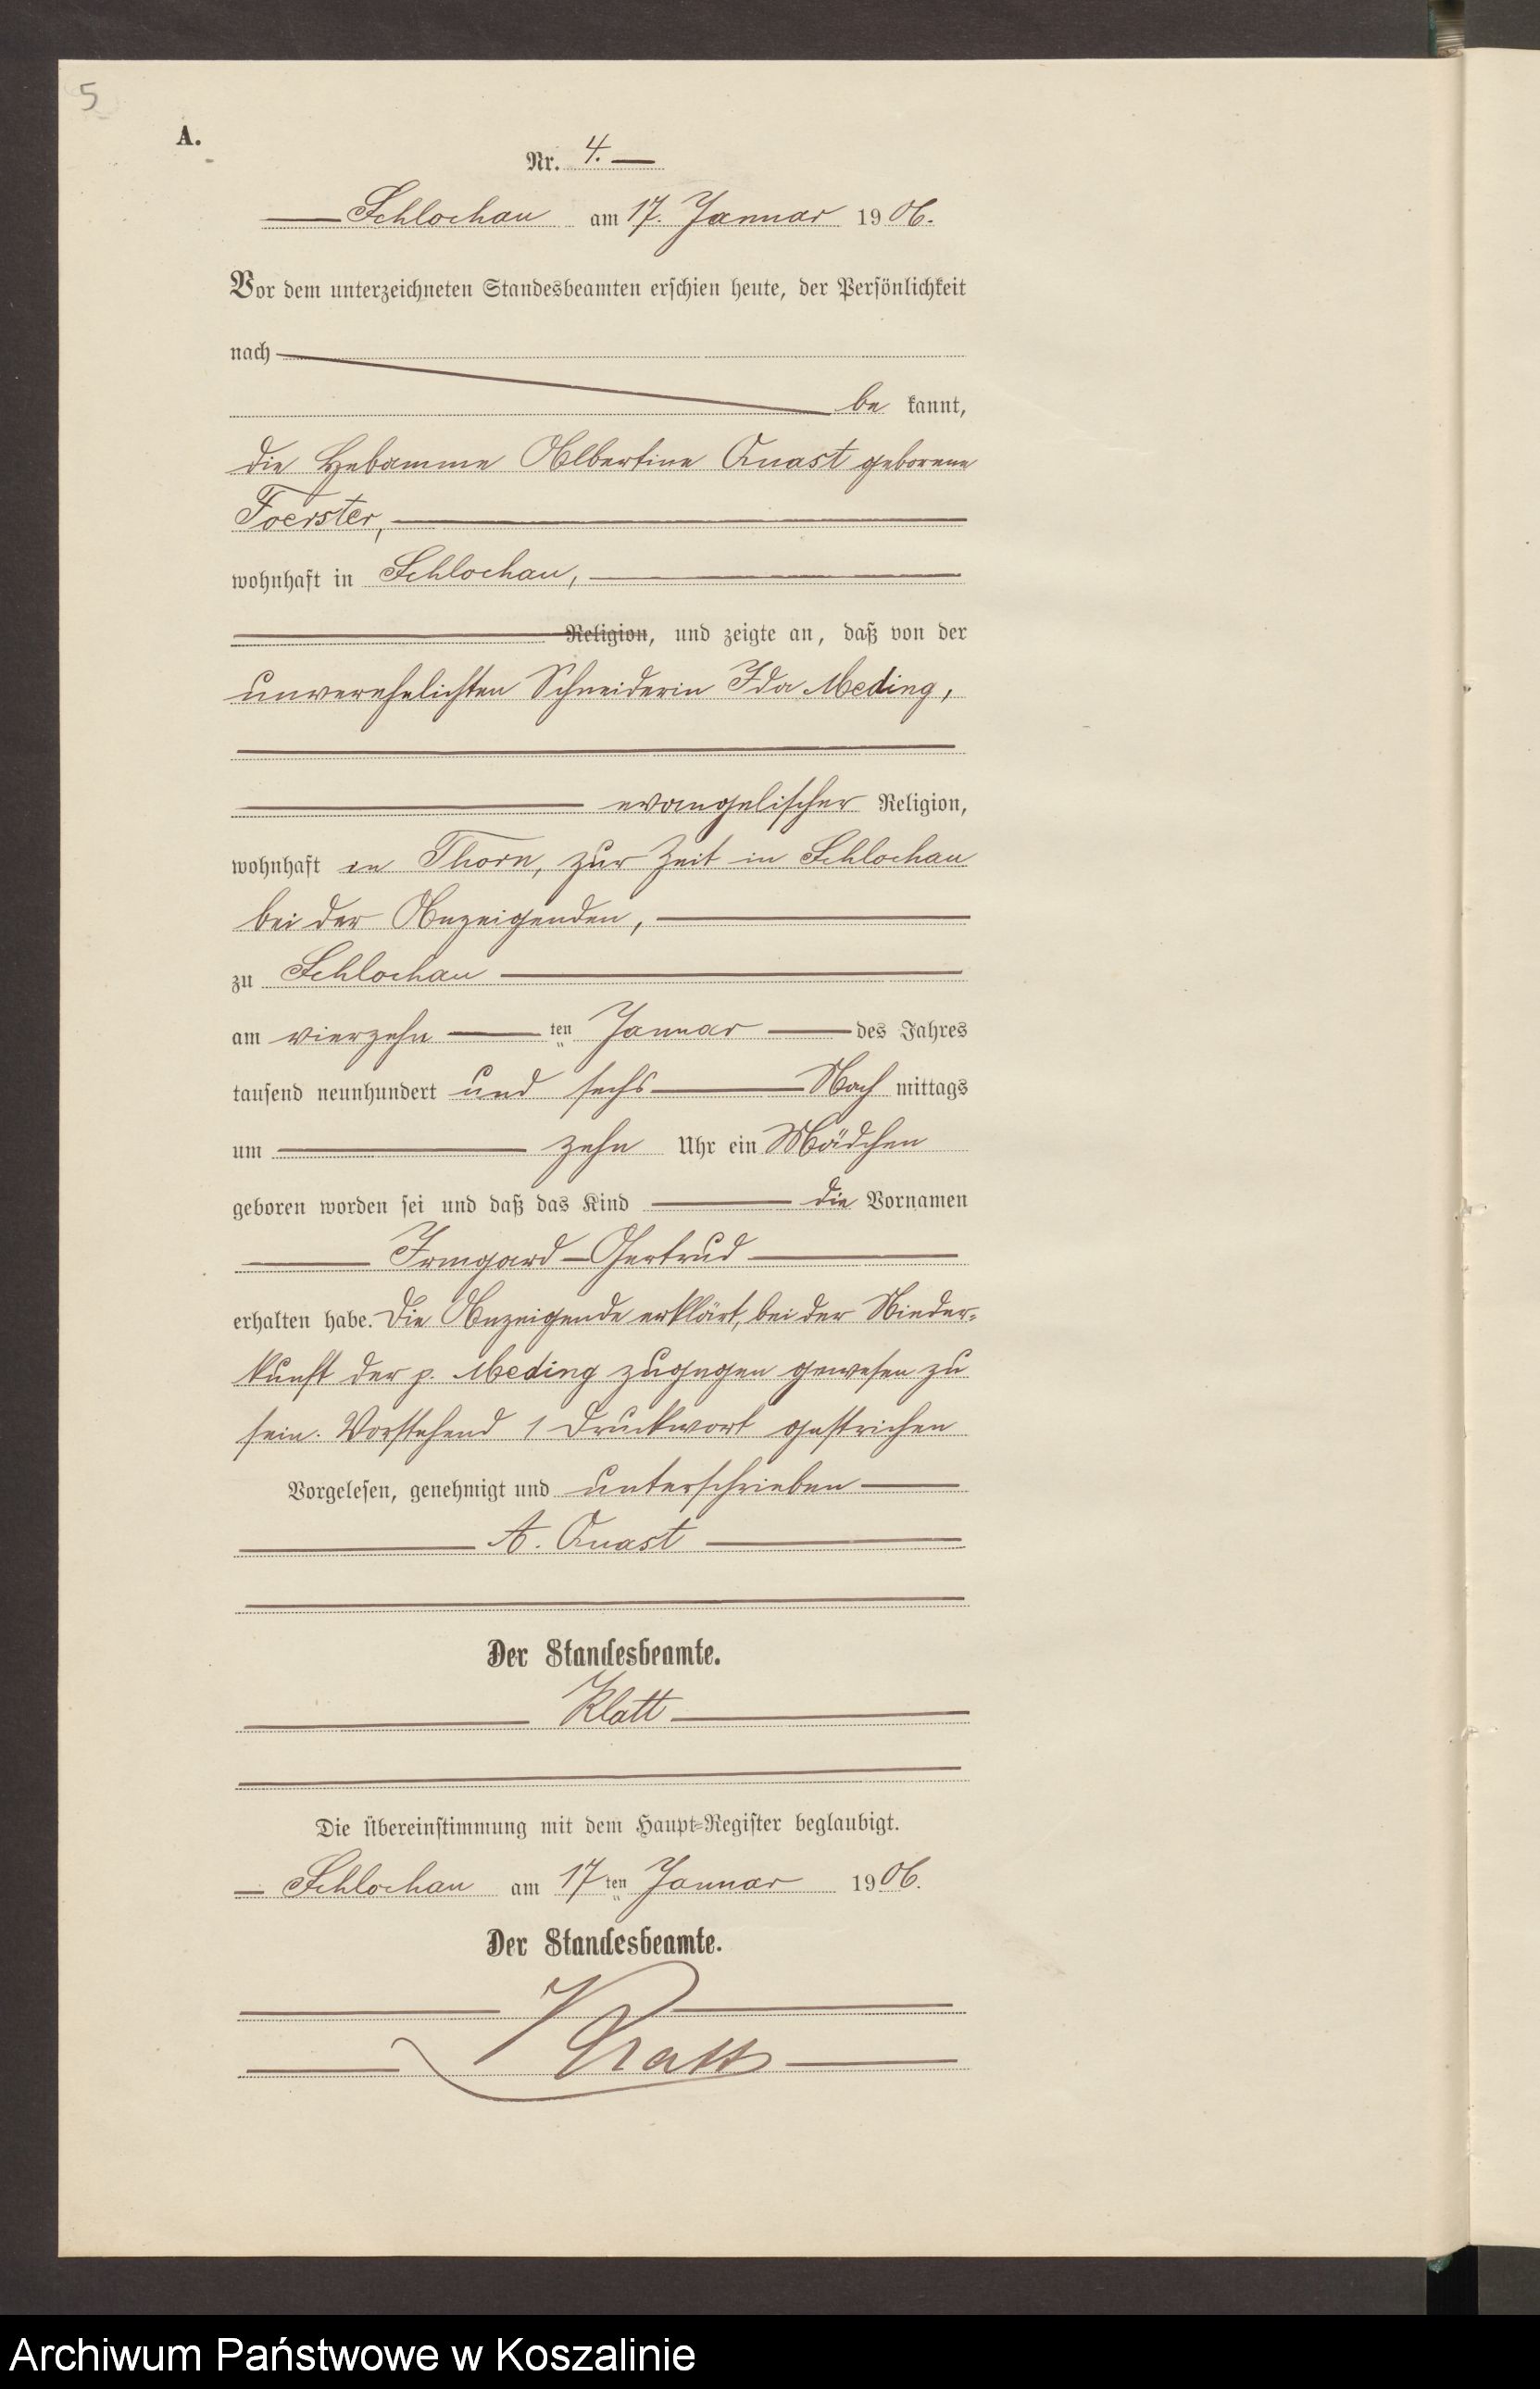 5
A.
Nr. 4.
Schlochau am 17. Januar 1906.
Vor dem unterzeichneten Standesbeamten erschien heute, der Persönlichkeit
nach
be kannt,
die Hebamme Albertine Quast geborene
Foerster,
wohnhaft in Schlochau,
Religion, und zeigte an, daß von der
unverehelichten Schneiderin Ida Meding,
evangelischer Religion,
wohnhaft in Thorn, zur Zeit in Schlochau
bei der Anzeigenden,
zu Schlochau
am vierzehn ten Januar des Jahres
tausend neunhundert und sechs Nach mittags
um zehn Uhr ein Mädchen
geboren worden sei und daß das Kind die Vornamen
Irmgard-Gertrud
erhalten habe. Die Anzeigende erklärt, bei der Nieder-
kunft der p. Meding zugegen gewesen zu
sein. Vorstehend 1 Druckwort gestrichen
Vorgelesen, genehmigt und unterschrieben
A. Quast
Der Standesbeamte.
Klatt
Die Übereinstimmung mit dem Haupt-Register beglaubigt.
Schlochau am 17ten Januar 1906.
Der Standesbeamte.
Klatt
Archiwum Państwowe w Koszalinie